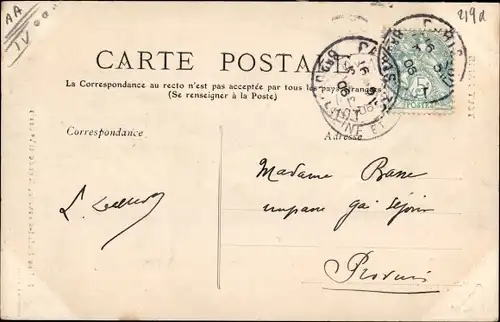 AA
IV
219a
CARTE POSTALE
La Correspondance au recto n'est pas acceptée par tous les pays étrangers
(Se renseigner à la Poste)
Correspondance
Adresse
Madame Basse
impasse gai séjour
Provins